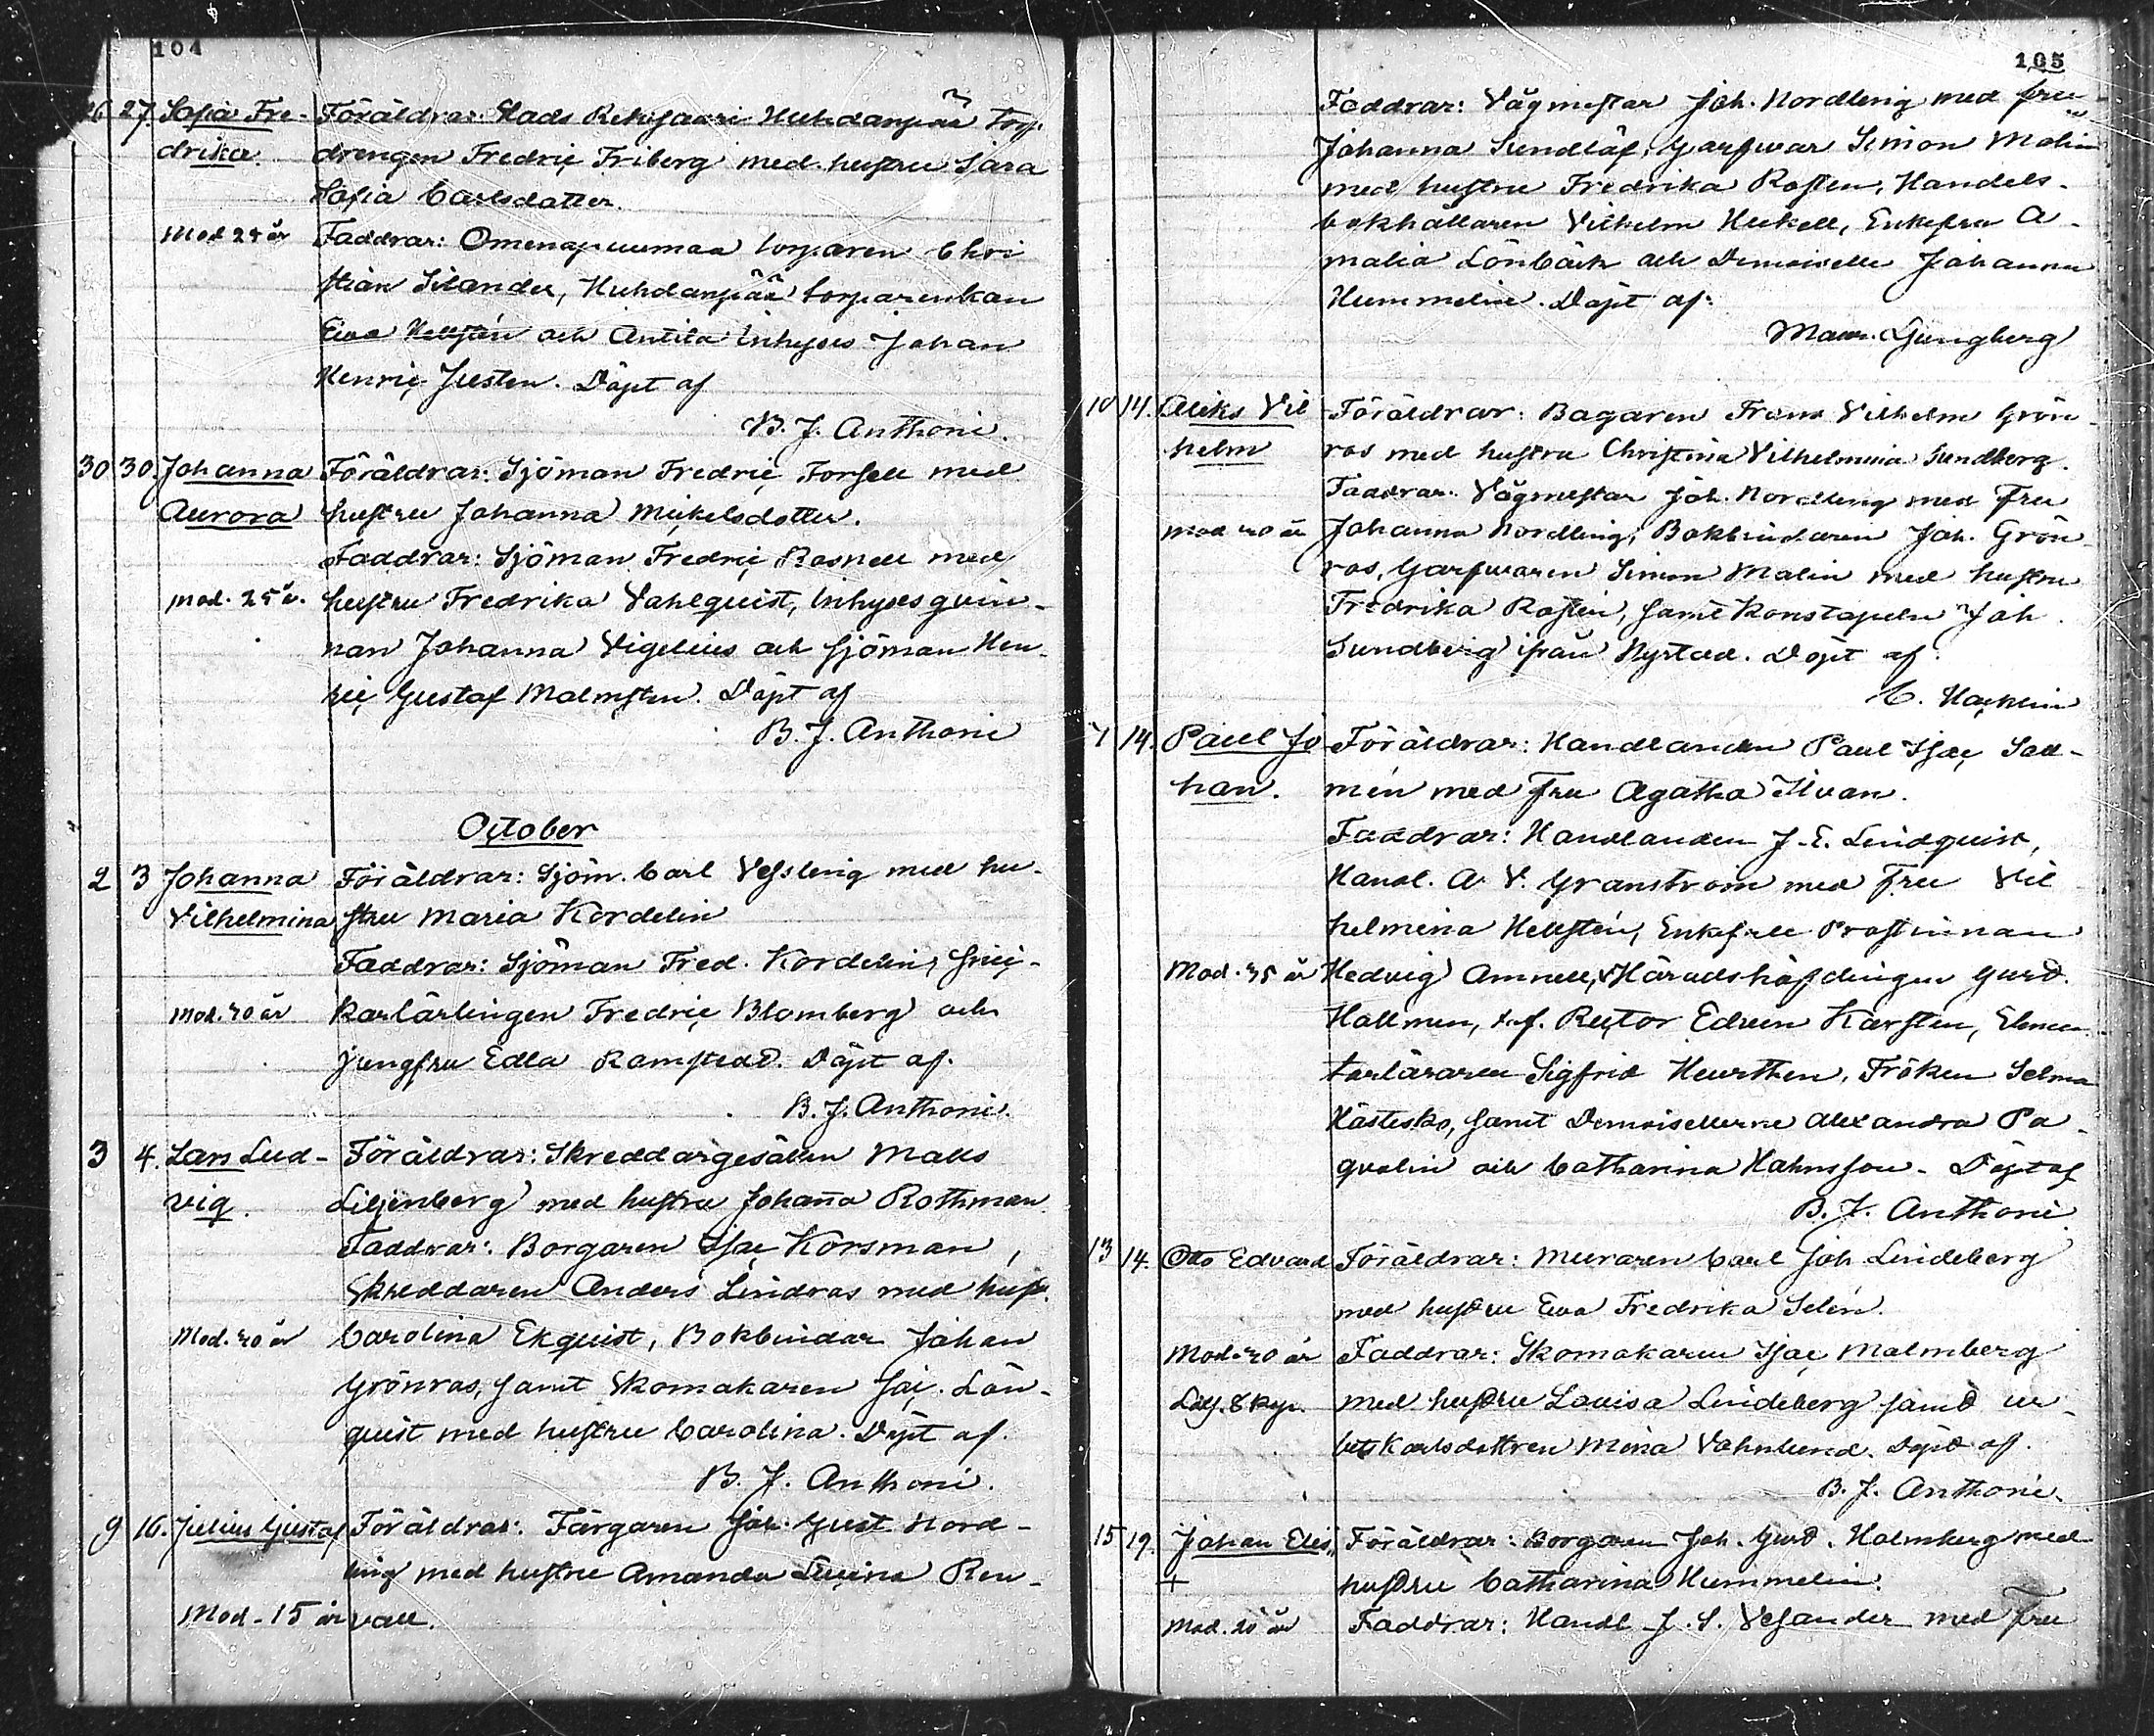 104
26 27. Sofia Fre- Föräldrar: Stads Rekisaari Huhdanpää torp.
drika. drengen Fredric Friberg med hustru Sara
Sofia Carlsdotter.
Mod 24 år Faddrar: Omenapuumaa torparen Chri
stian Silander, Huhdanpää torparenkan
Eva Hellstén och Antila Inhyses Johan
Henric Justen. Döpt af
B. J. Anthoni.
30 30. Johanna Föräldrar: Sjöman Fredric Forsell med
Aurora hustru Johanna Mickelsdotter.
Faddrar: Sjöman Fredric Rosnell med
mod. 25 å. hustru Fredrika Vahlquist, Inhyses qvin-
nan Johanna Vigelius och sjöman Hen-
ric Gustaf Malmsten. Döpt af
B. J. Anthoni
October
2 3 Johanna Föräldrar: Sjöm. Carl Vessling med hu-
Vilhelmina stru Maria Kordelin
Faddrar: Sjöman Fred. Kordelin, snic-
mod. 20 år karlärlingen Fredric Blomberg och
jungfru Edla Ramstedt. Döpt af.
B. J. Anthoni.
3 4. Lars Lud- Föräldrar: Skreddargesällen Matts
vig. Liljenberg med hustru Johanna Rothman.
Faddrar: Borgaren Isac Korsman,
Skreddaren Anders Lindros med hustr.
Mod. 20 år Carolina Ekquist, Bokbindar Johan
Grönros, samt Skomakaren Isac. Lön-
quist med hustru Carolina. Döpt af.
B. J. Anthoni.
9 16. Julius Gustaf Föräldrar: Färgaren Joh. Gust. Nord-
ling med hustru Amanda Ren-
Mod. 15 år vall.
105
Faddrar: Vågmestar Joh. Nordling med fru
Johanna Sundlöf, Garfvar Simon Malin
med hustru Fredrika Rosten, Handels-
bokhållaren Vilhelm Heckell, Enkefru A-
malia Lönbäck och Demoiselle Johanna
Hummelin. Döpt af:
Maur. Ljungberg
10 14. Aleks Vil Föräldrar: Bagaren Frans Vilhelm Grön-
helm ros med hustru Christina Vilhelmina Sundberg.
Faddrar: Vågmestar Joh. Nordling med Fru
mod 20 år Johanna Nordling, Bokbindaren Joh. Grön-
ros, Garfvaren Simon Malin med hustru
Fredrika Rosten, samt Konstapeln Joh.
Sundberg ifrån Nystad. Döpt af.
C. Hacklin
7 14. Paul Jo- Föräldrar: Handlanden Paul Isac Sall-
han. mén med Fru Agatha Silvan.
Faddrar: Handlanden J. E. Lindquist,
Handl. A. V. Granström med Fru Vil
helmina Hellstén, Enkefru Prostinnan
Mod. 35 år Hedvig Amnell, Häradshöfdingen Gust.
Hallmen, t.f. Rector Edvin Karsten, Elemen
tarläraren Sigfrid Heurthen, Fröken Selma
Hästesko, samt Demoisellerne Alexandra Pa-
qvalin och Catharina Hahnsson. Döpt af
B. J. Anthoni
13 14. Otto Edvard Föräldrar: Muraren Carl Joh Lindeberg
med hustru Eva Fredrika Selén.
Mod. 20 år Faddrar: Skomakaren Isac Malmberg
med hustru Lovisa Lindeberg samt ar-
betskarlsdottren Mina Vahnlund. Döpt af.
B. J. Anthoni.
15 19. Johan Elis Föräldrar: Borgaren Joh. Gust. Holmberg med
+ hustru Catharina Hummelin.
Mod. 20 år Faddrar: Handl J. S. Vesander med Fru